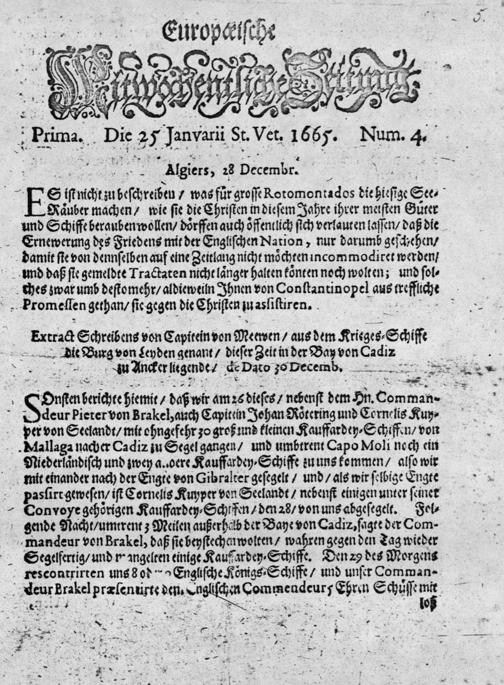 5.
Europæische
Mitwochentliche Zeitung
Prima. Die 25 Janvarii St. Vet. 1665. Num. 4.
Algiers, 28 Decembr.
ES ist nicht zu beschreiben / was für grosse Rotomontados die hiesige See-
Räuber machen / wie sie die Christen in diesem Jahre ihrer meisten Güter
und Schiffe berauben wollen / dörffen auch öffentlich sich verlauten lassen / daß die
Ernewerung des Friedens mit der Englischen Nation, nur darumb geschehen /
damit sie von dennselben auf eine Zeitlang nicht möchten incommodiret werden /
und daß sie gemeldte Tractaten nicht länger halten könten noch wolten; und sol-
ches zwar umb destomehr / aldieweiln Ihnen von Constantinopel aus treffliche
Promessen gethan / sie gegen die Christen zu assistiren.
Extract Schreibens von Capitein von Meewen / aus dem Krieges-Schiffe
die Burg von Leyden genant / dieser Zeit in der Bay von Cadiz
zu Ancker liegende / de Dato 30 Decemb.
SOnsten berichte hiemit / daß wir am 25 dieses / nebenst dem Hn. Comman-
deur Pieter von Brakel, auch Capitein Johan Rötering und Cornelis Kuy-
per von Seelandt / mit ohngefehr 30 groß und kleinen Kauffardey-Schiffen / von
Mallaga nacher Cadiz zu Segel gangen / und umbtrent Capo Moli noch ein
Niederländisch und zwey andere Kauffardey-Schiffe zu uns kommen / also wir
mit einander nach der Engte von Gibralter gesegelt / und / als wir selbige Engte
passirt gewesen / ist Cornelis Kuyper von Seelandt / nebenst einigen unter seiner
Convoye gehörigen Kauffardey-Schiffen / den 28 / von uns abgesegelt. Fol-
gende Nacht / umtrent 3 Meilen außerhalb der Baye von Cadiz, sagte der Com-
mandeur von Brakel, daß sie beystechen wolten / wahren gegen den Tag wieder
Segelfertig / und mangelten einige Kauffardey-Schiffe. Den 29 des Morgens
rescontrirten uns 8 Englische Königs-Schiffe / und unser Comman-
deur Brakel præsentirte dem Englischen Commendeur 5 Ehren Schüsse mit
loß